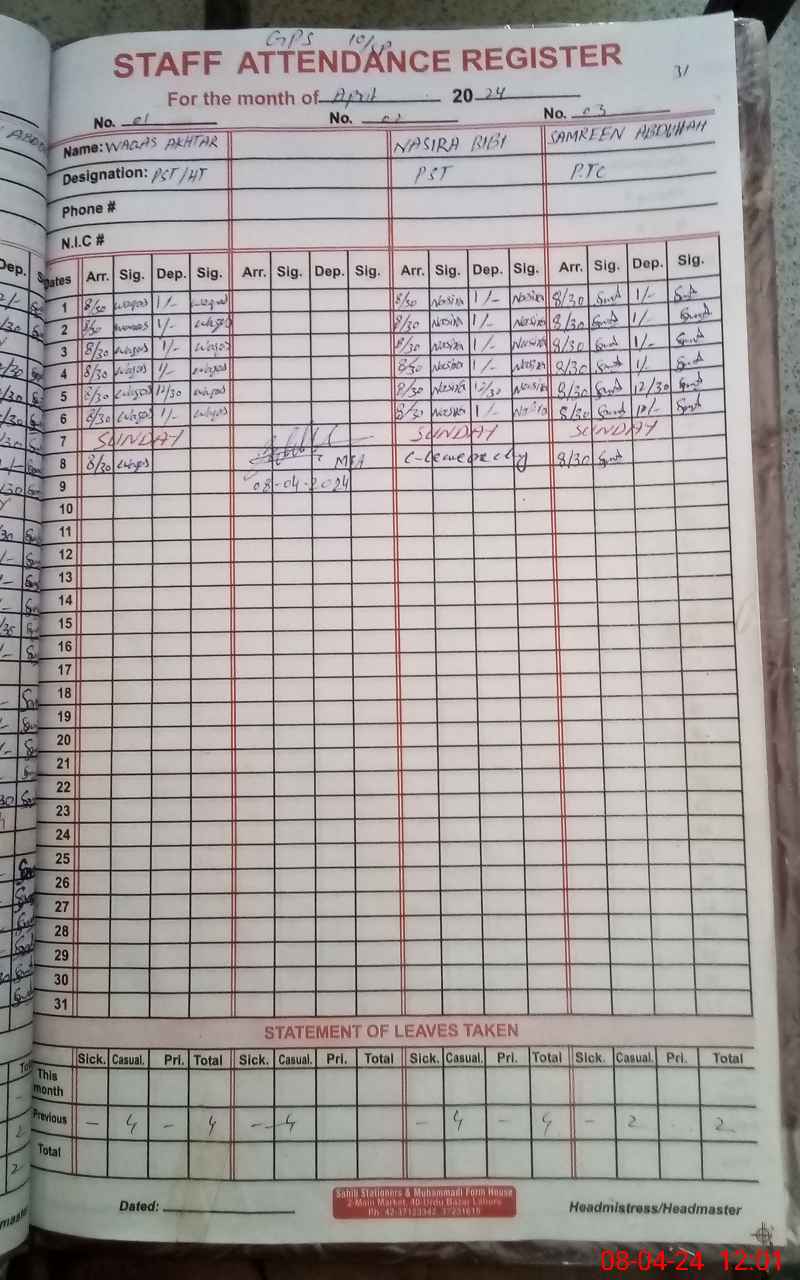 GPS 10/SP
STAFF ATTENDANCE REGISTER
31
For the month of April 2024
No. 01 No. 02 No. 03
Name: WAQAS AKHTAR NASIRA BIBI SAMREEN ABDULLAH
Designation: PST/HT PST PTC
Phone #
N.I.C #
Dates Arr. Sig. Dep. Sig. Arr. Sig. Dep. Sig. Arr. Sig. Dep. Sig. Arr. Sig. Dep. Sig.
1 8/30 waqas 1/- waqas 8/30 Nasira 1/- Nasira 8/30 1/-
2 8/30 waqas 1/- waqas 8/30 Nasira 1/- Nasira 8/30 1/-
3 8/30 waqas 1/- waqas 8/30 Nasira 1/- Nasira 8/30 1/-
4 8/30 waqas 1/- waqas 8/30 Nasira 1/- Nasira 8/30 1/-
5 8/30 waqas 12/30 waqas 8/30 Nasira 12/30 Nasira 8/30 12/30
6 8/30 waqas 1/- waqas 8/30 Nasira 1/- Nasira 8/30
7 SUNDAY SUNDAY SUNDAY
8 8/30 waqas MEA 8/30
9 08-04-2024
10
11
12
13
14
15
16
17
18
19
20
21
22
23
24
25
26
27
28
29
30
31
STATEMENT OF LEAVES TAKEN
Sick. Casual. Pri. Total Sick. Casual. Pri. Total Sick. Casual. Pri. Total Sick. Casual. Pri. Total
This month
Previous - 4 - 4 - 4 - 4 - 4 - 2 2
Total
Dated:
Sahib Stationers & Muhammadi Form House
2-Main Market, 40-Urdu Bazar Lahore
Ph: 42-37123342, 37231615
Headmistress/Headmaster
08-04-24 12:01